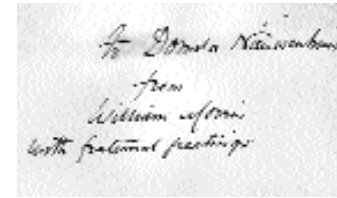 to Domela Nieuwenhuis
from
William Morris
with fraternal greetings